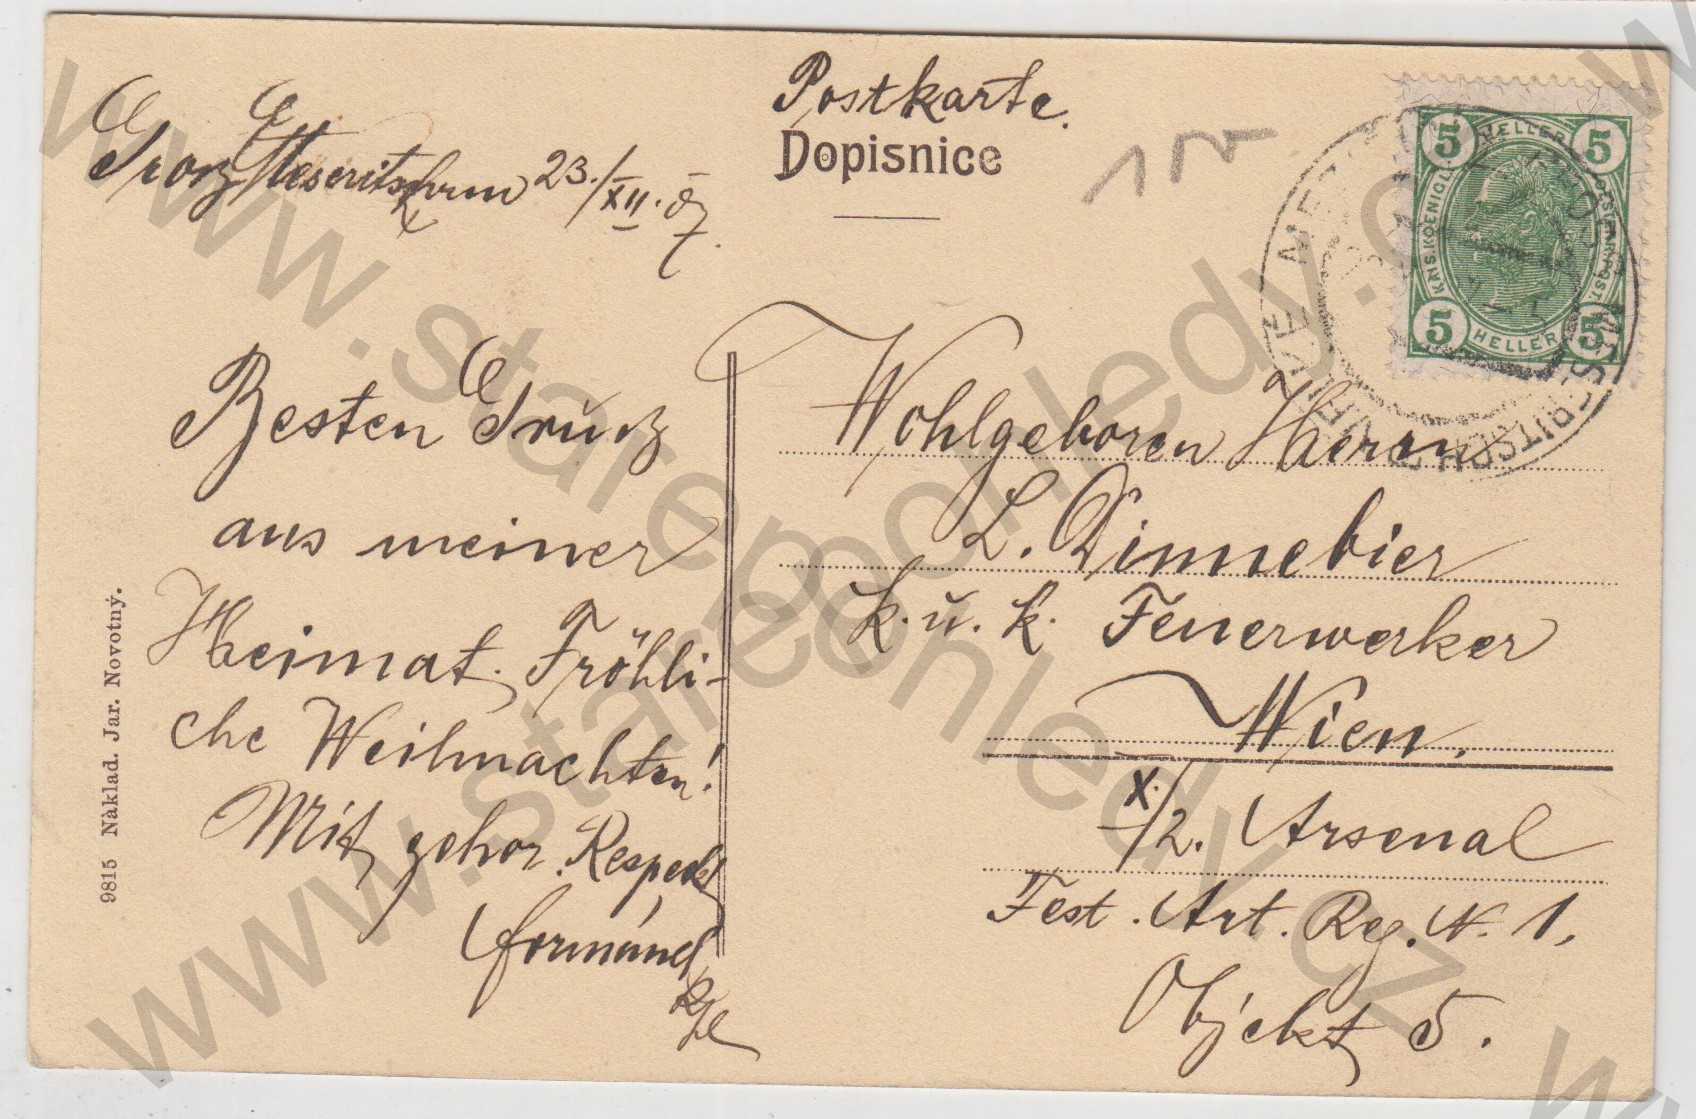 Postkarte.
Dopisnice
100
Groß Meseritsch 23./XII. 07.
Besten Gruß
aus meiner
Heimat. Fröhli-
che Weihnachten!
Mit gehor. Respekt
Formánek
Wohlgeboren Herrn
L. Dinnebier
k. u. k. Feuerwerker
Wien.
X./2. Arsenal
Fest. Art. Reg. N. 1,
Objekt 5.
9815 Nàklad. Jar. Novotný.
5 HELLER 5
KAIS. KOENIGL. OESTERR. POST
5 HELLER 5
www.starepohledy.cz
www.starepohledy.cz